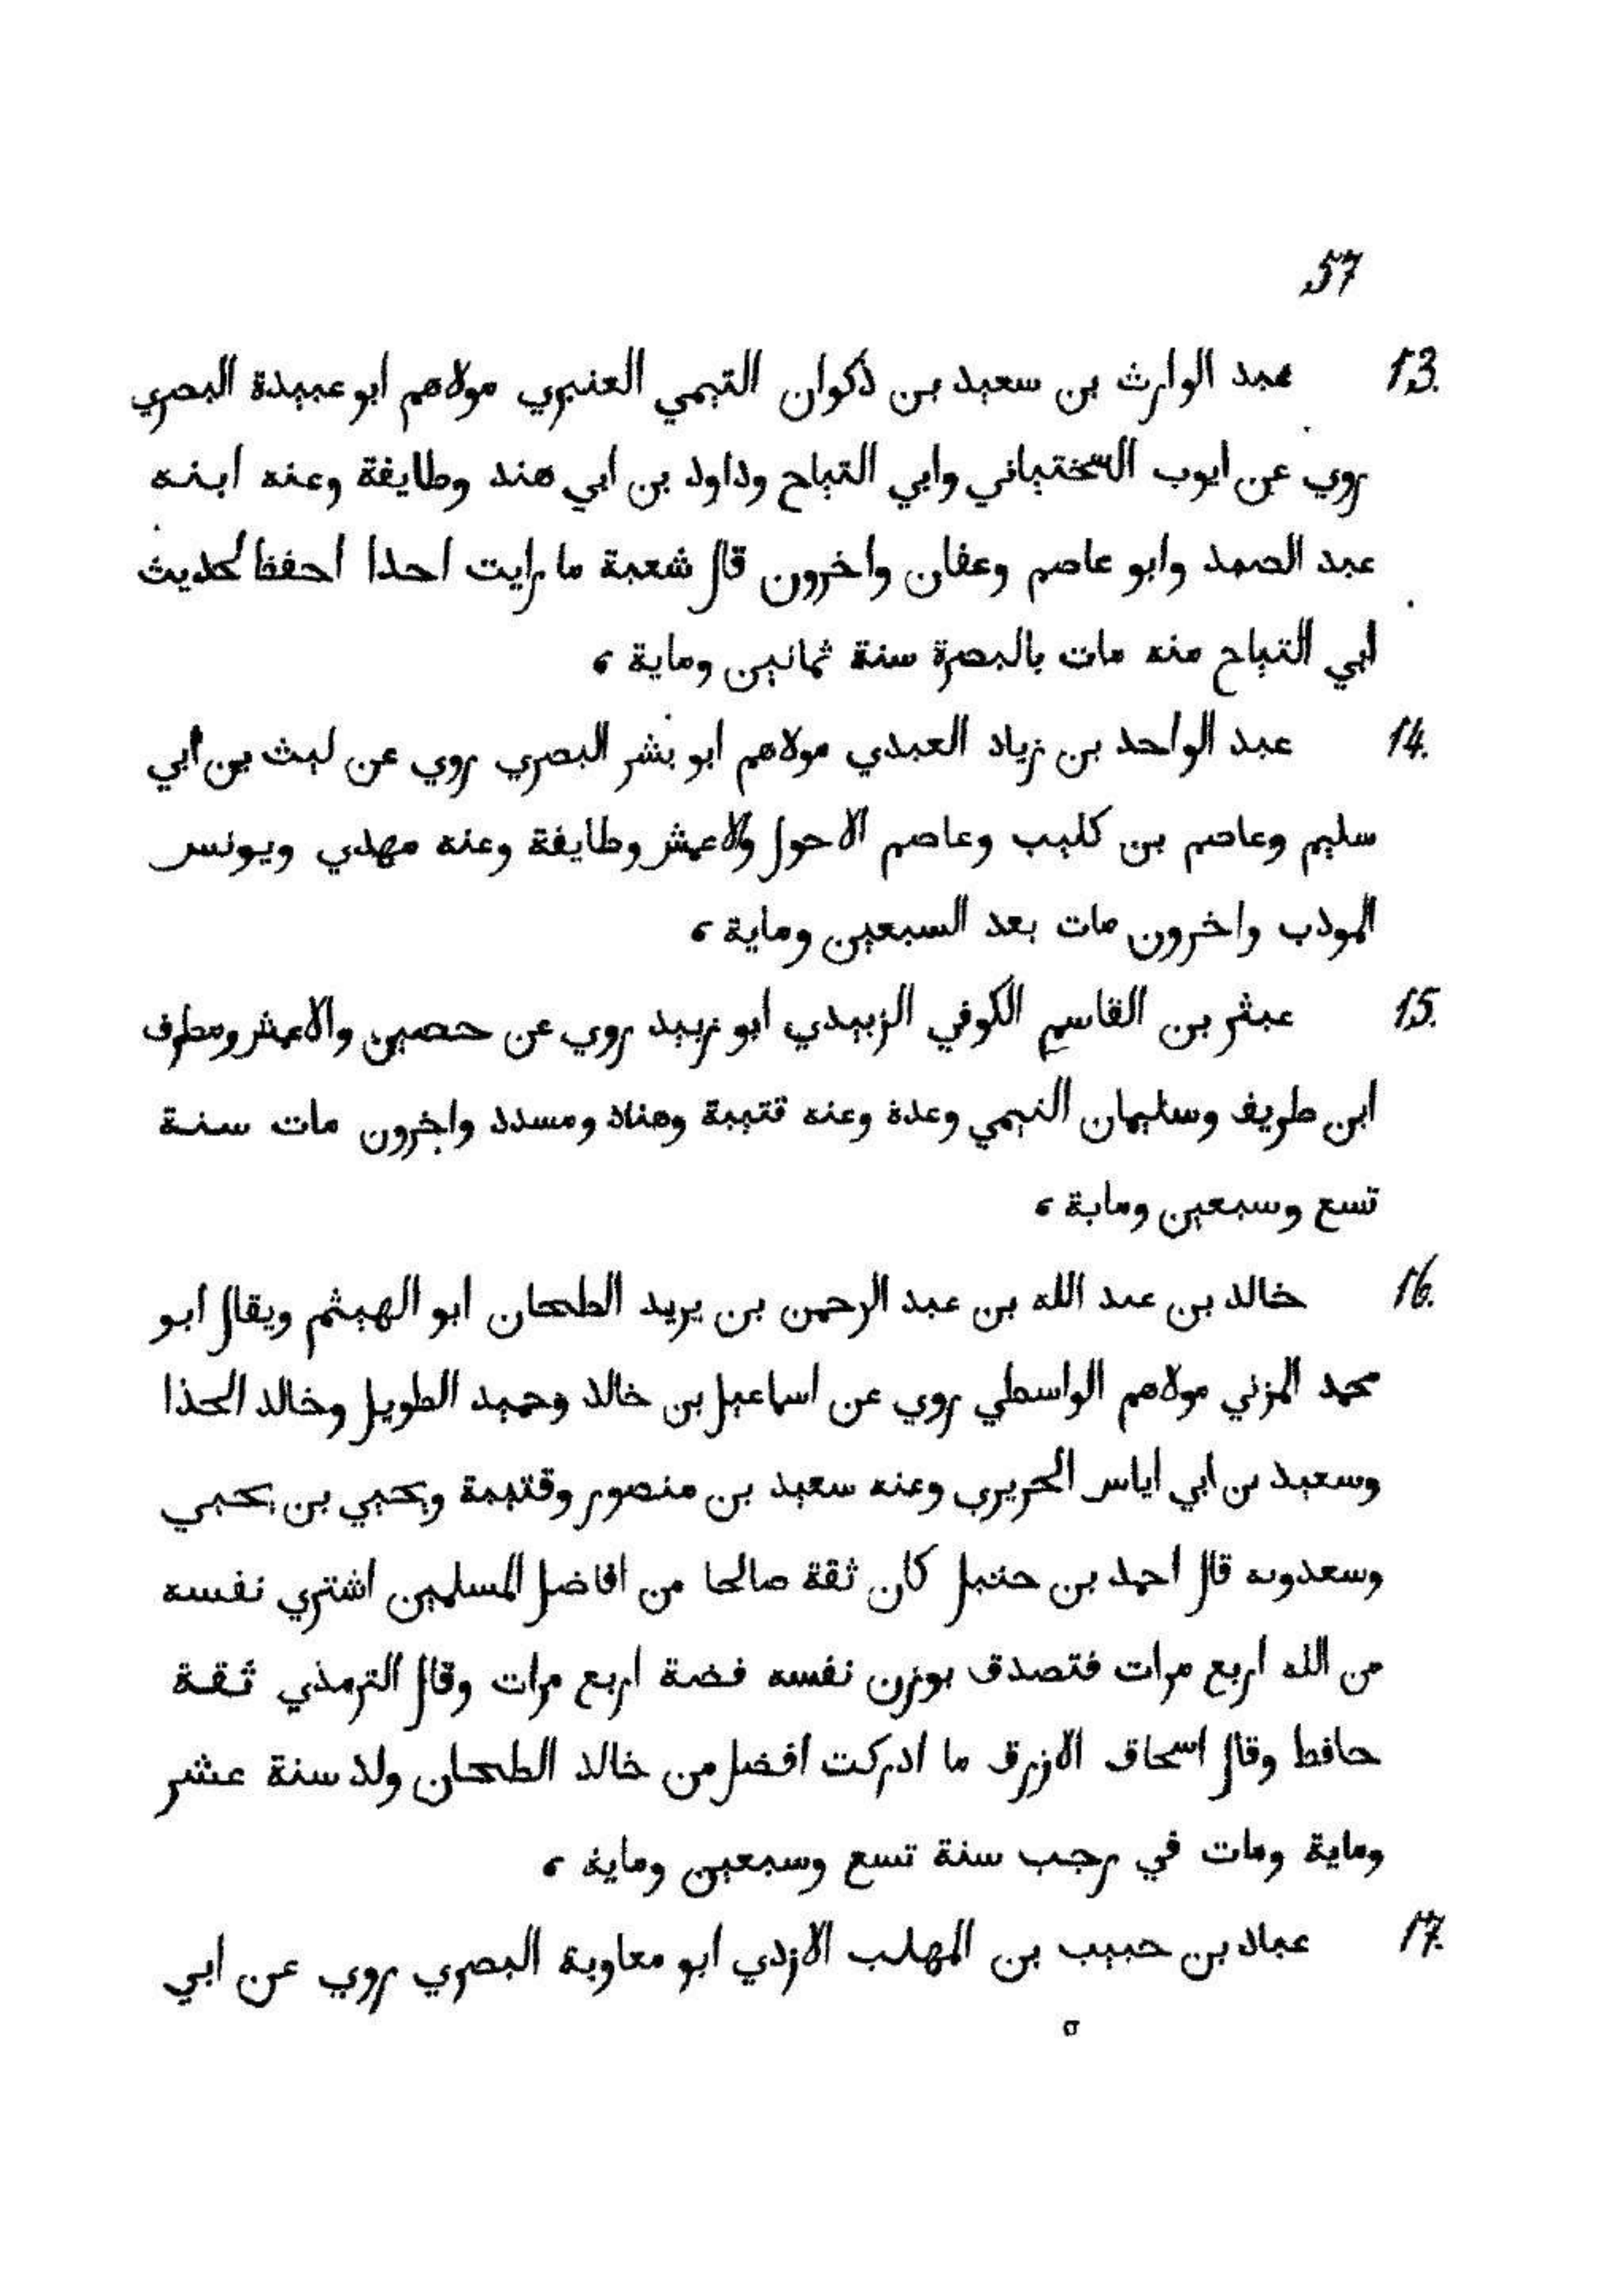 57
13. عبد الوارث بن سعيد بن ذكوان التيمي العنبري مولاهم ابو عبيدة البصري
روي عن ايوب السختياني وابي التياح وداود بن ابي هند وطايفة وعنه ابنه
عبد الصمد وابو عاصم وعفان واخرون قال شعبة ما رايت احدا احفظ لحديث
ابي التياح منه مات بالبصرة سنة ثمانين وماية ،
14. عبد الواحد بن زياد العبدي مولاهم ابو بشر البصري روي عن ليث بن ابي
سليم وعاصم بن كليب وعاصم الاحول والاعمش وطايفة وعنه مهدي ويونس
المودب واخرون مات بعد السبعين وماية ،
15. عبثر بن القاسم الكوفي الزبيدي ابو زبيد روي عن حصين والاعمش ومطرف
ابن طريف وسليمان التيمي وعدة وعنه قتيبة وهناد ومسدد واخرون مات سنة
تسع وسبعين وماية ،
16. خالد بن عبد الله بن عبد الرحمن بن يريد الطحان ابو الهيثم ويقال ابو
محمد المزني مولاهم الواسطي روي عن اسماعيل بن خالد وحميد الطويل وخالد الحذا
وسعيد بن ابي اياس الحريري وعنه سعيد بن منصور وقتيبة ويحيي بن يحيي
وسعدويه قال احمد بن حنبل كان ثقة صالحا من افاضل المسلمين اشتري نفسه
من الله اربع مرات فتصدق بوزن نفسه فضة اربع مرات وقال الترمذي ثقة
حافظ وقال اسحاق الازرق ما ادركت افضل من خالد الطحان ولد سنة عشر
وماية ومات في رجب سنة تسع وسبعين وماية ،
17. عباد بن حبيب بن المهلب الازدي ابو معاوية البصري روي عن ابي